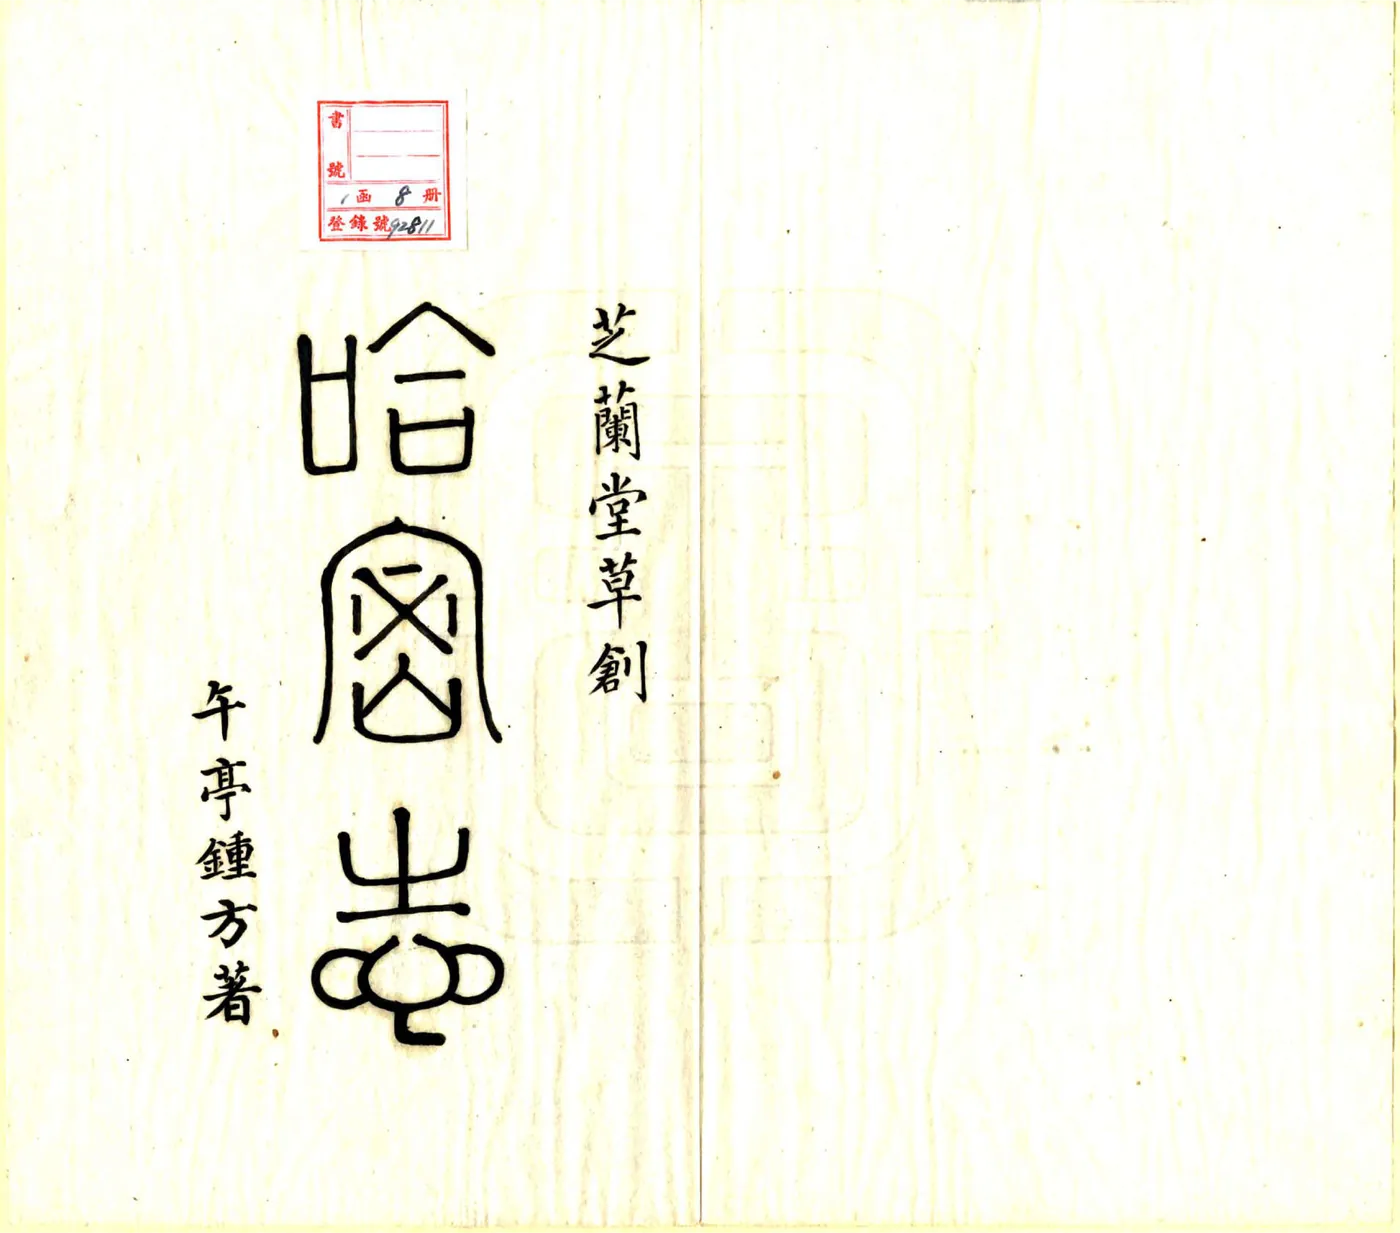 芝蘭堂草創
哈密志
午亭鍾方著
書號
1函 8册
登錄號92811